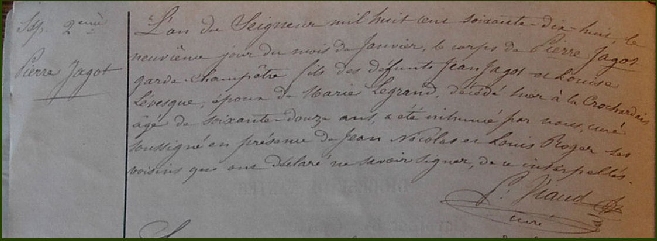 Sép. 2ème
Pierre Jagot
L'an du Seigneur mil huit cent soixante-dix-huit, le
neuvième jour du mois de Janvier, le corps de Pierre Jagot
garde-champêtre, fils des défunts Jean Jagot et Louise
Levesque, époux de Marie Legrand, décédé hier à la Crochardais
âgé de soixante-douze ans, a été inhumé par nous, curé
soussigné en présence de Jean Nicolas et Louis Roger ses
voisins qui ont déclaré ne savoir signer, de ce interpellés.
curé